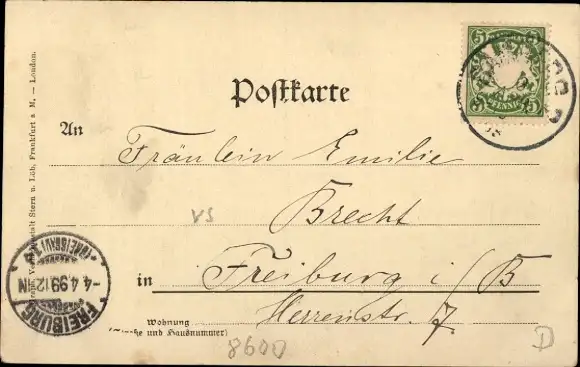 Postkarte
5 5
5 PFENNIG 5
An
Fräulein Emilie
Brecht
VS
in Freiburg i/B
Herrenstr. 7.
Wohnung
und Hausnummer)
8600
D
FREIBURG
-4.4.99.12-1N
(BREISGAU)
Stern u. Löb, Frankfurt a M. — London.